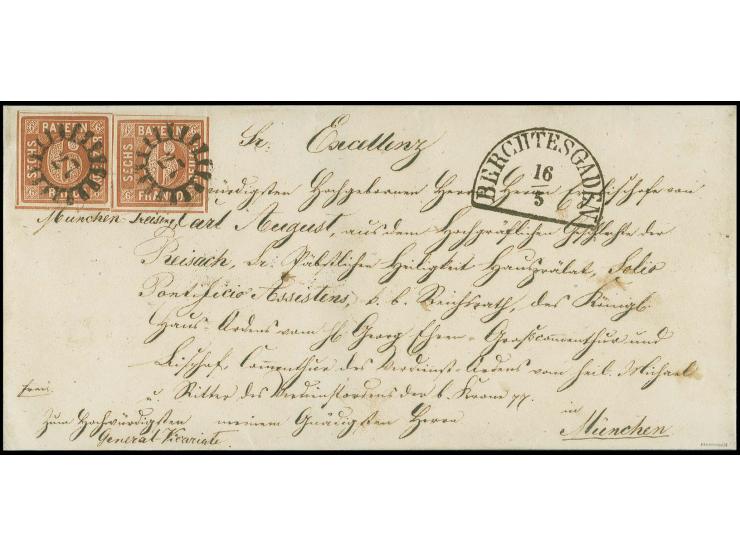 BAYERN
SECHS
FRANCO
6
BAYERN
SECHS
FRANCO
6
BERCHTESGADEN
16
5
Sr. Excellenz
würdigsten Hochgebornen Herrn Herrn Erzbischofe von
München-Freising Carl August, aus dem Hochgräflichen Geschlechte der
Reisach, Sr. Päbstlichen Heiligkeit Hausprälat, Solio
Pontificio Assistens, k. b. Reichsrath, des Königl.
Haus-Ordens vom hl. Georg Ehren-Großcommenthur und
Bischof, Commenthur des Verdienst-Ordens vom heil. Michael
frei.
u. Ritter des Verdienstordens der b. Krone
in
Zum Hochwürdigsten meinem Gnädigsten Herrn
General-Vicariate.
München